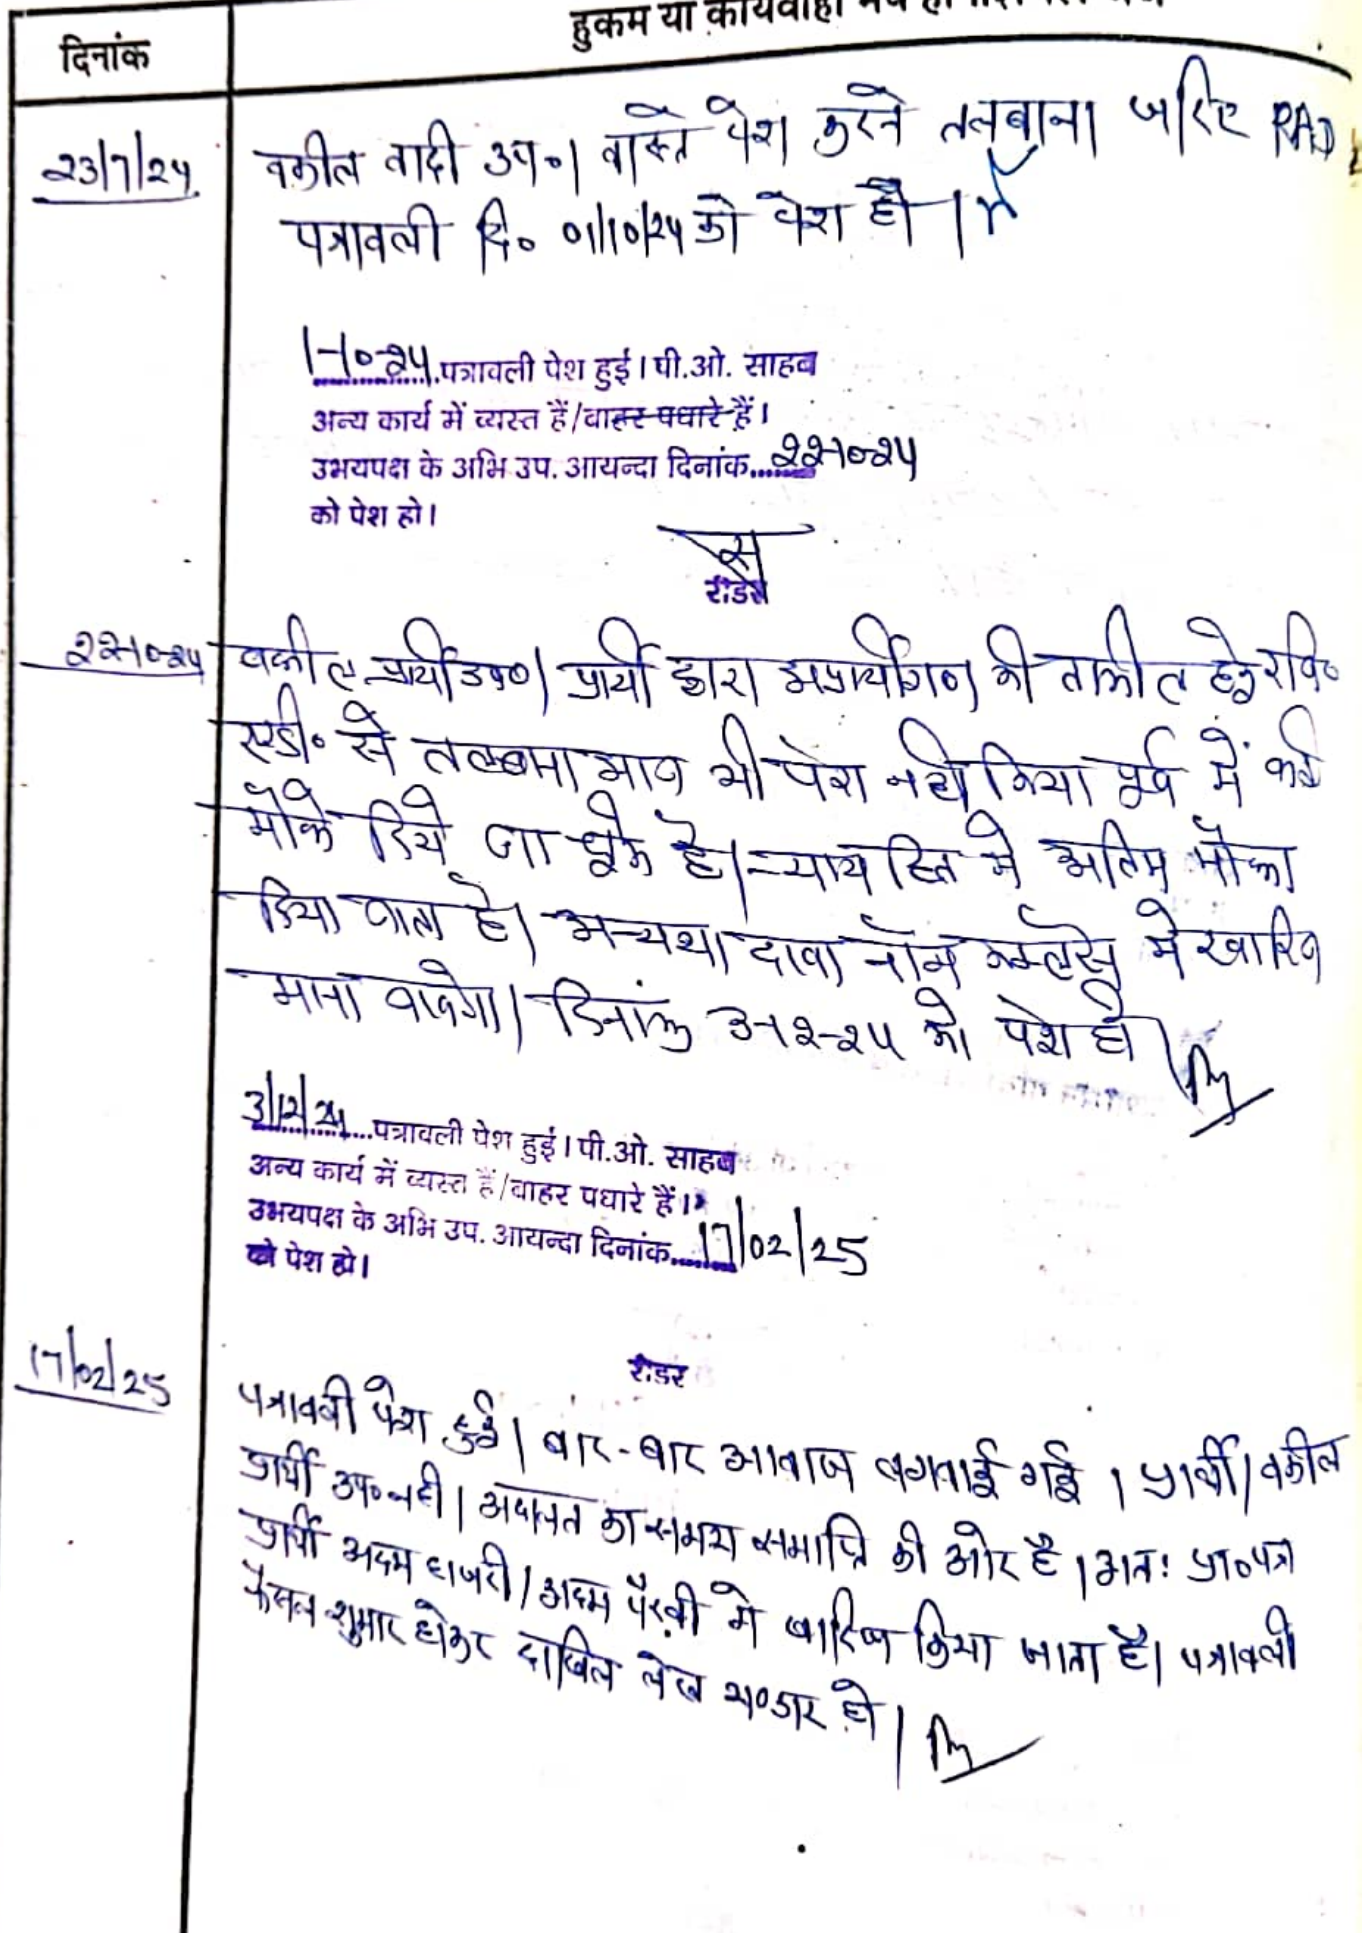 हुकम या कार्यवाही
दिनांक
23/7/24 वकील वादी उप०। वास्ते पेश करने तलबाना जरिए RAD
पत्रावली दि० 01/10/24 को पेश हो।
1-10-24 पत्रावली पेश हुई। पी.ओ. साहब
अन्य कार्य में व्यस्त हैं/बाहर पधारे हैं।
उभयपक्ष के अभि उप. आयन्दा दिनांक....22-10-24
को पेश हो।
रीडर
22-10-24 वकील प्रार्थी उप०। प्रार्थी द्वारा अप्रार्थीगण की तामील हेतु रजि०
एडी० से तलबाना आज भी पेश नही किया पूर्व में कई
मौके दिये जा चूके है। न्याय हित मे अंतिम मौका
दिया जाता है। अन्यथा दावा नॉन कम्प्लेंस मे खारिज
माना जावेगा। दिनांक 3-12-24 को पेश हो।
3/12/24...पत्रावली पेश हुई। पी.ओ. साहब
अन्य कार्य में व्यस्त हैं/बाहर पधारे हैं।
उभयपक्ष के अभि उप. आयन्दा दिनांक....17/02/25
को पेश हो।
रीडर
17/02/25 पत्रावली पेश हुई। बार-बार आवाज लगवाई गई। प्रार्थी/वकील
प्रार्थी उप० नही। अदालत का समय समाप्ति की ओर है। अतः प्रा०पत्र
प्रार्थी अदम हाजरी/अदम पैरवी मे खारिज किया जाता है। पत्रावली
फैसल शुमार होकर दाखिल लेख भण्डार हो।